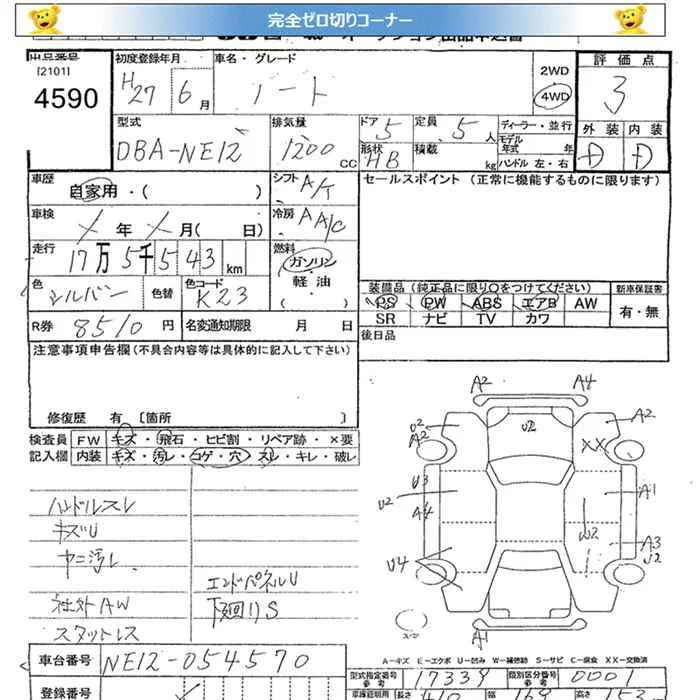 完全ゼロ切りコーナー
出品番号
[2101]
4590
初度登録年月
H27 6月
車名・グレード
ノート
2WD
4WD
評価点
3
型式
DBA-NE12
排気量
1200 CC
ドア 5
形状 HB
定員 5人
積載 kg
ディーラー・並行
モデル年式 年
ハンドル 左・右
外装 内装
D D
車歴
自家用・( )
シフト A/T
セールスポイント (正常に機能するものに限ります)
車検
年 月( 日)
冷房 AA/C
走行
17万5千543km
燃料
ガソリン
軽油
( )
色
シルバー
色替
色コード
K23
装備品(純正品に限り○をつけてください)
新車保証書
PS PW ABS エアB AW
有・無
SR ナビ TV カワ
R券 8510円
名変通知期限 月 日
後日品
注意事項申告欄(不具合内容等は具体的に記入して下さい)
修復歴 有 [箇所 ]
検査員 FW キズ・飛石・ヒビ割・リペア跡・×要
記入欄 内装 キズ・汚レ・コゲ・穴・スレ・キレ・破レ
ハンドルスレ
キズU
ヤニ汚レ
社外AW
スタットレス
エンドパネルU
下廻りS
A2 A4
U2
A2
U2
A2
XX
U3
U2
A4
A1
W2
A3
U2
U4
A1
A−キズ E−エクボ U−凹み W−補修跡 S−サビ C−腐食 XX−交換済
車台番号 NE12-054570
型式指定番号 17339
類別区分番号 0001
登録番号
長さ
高さ